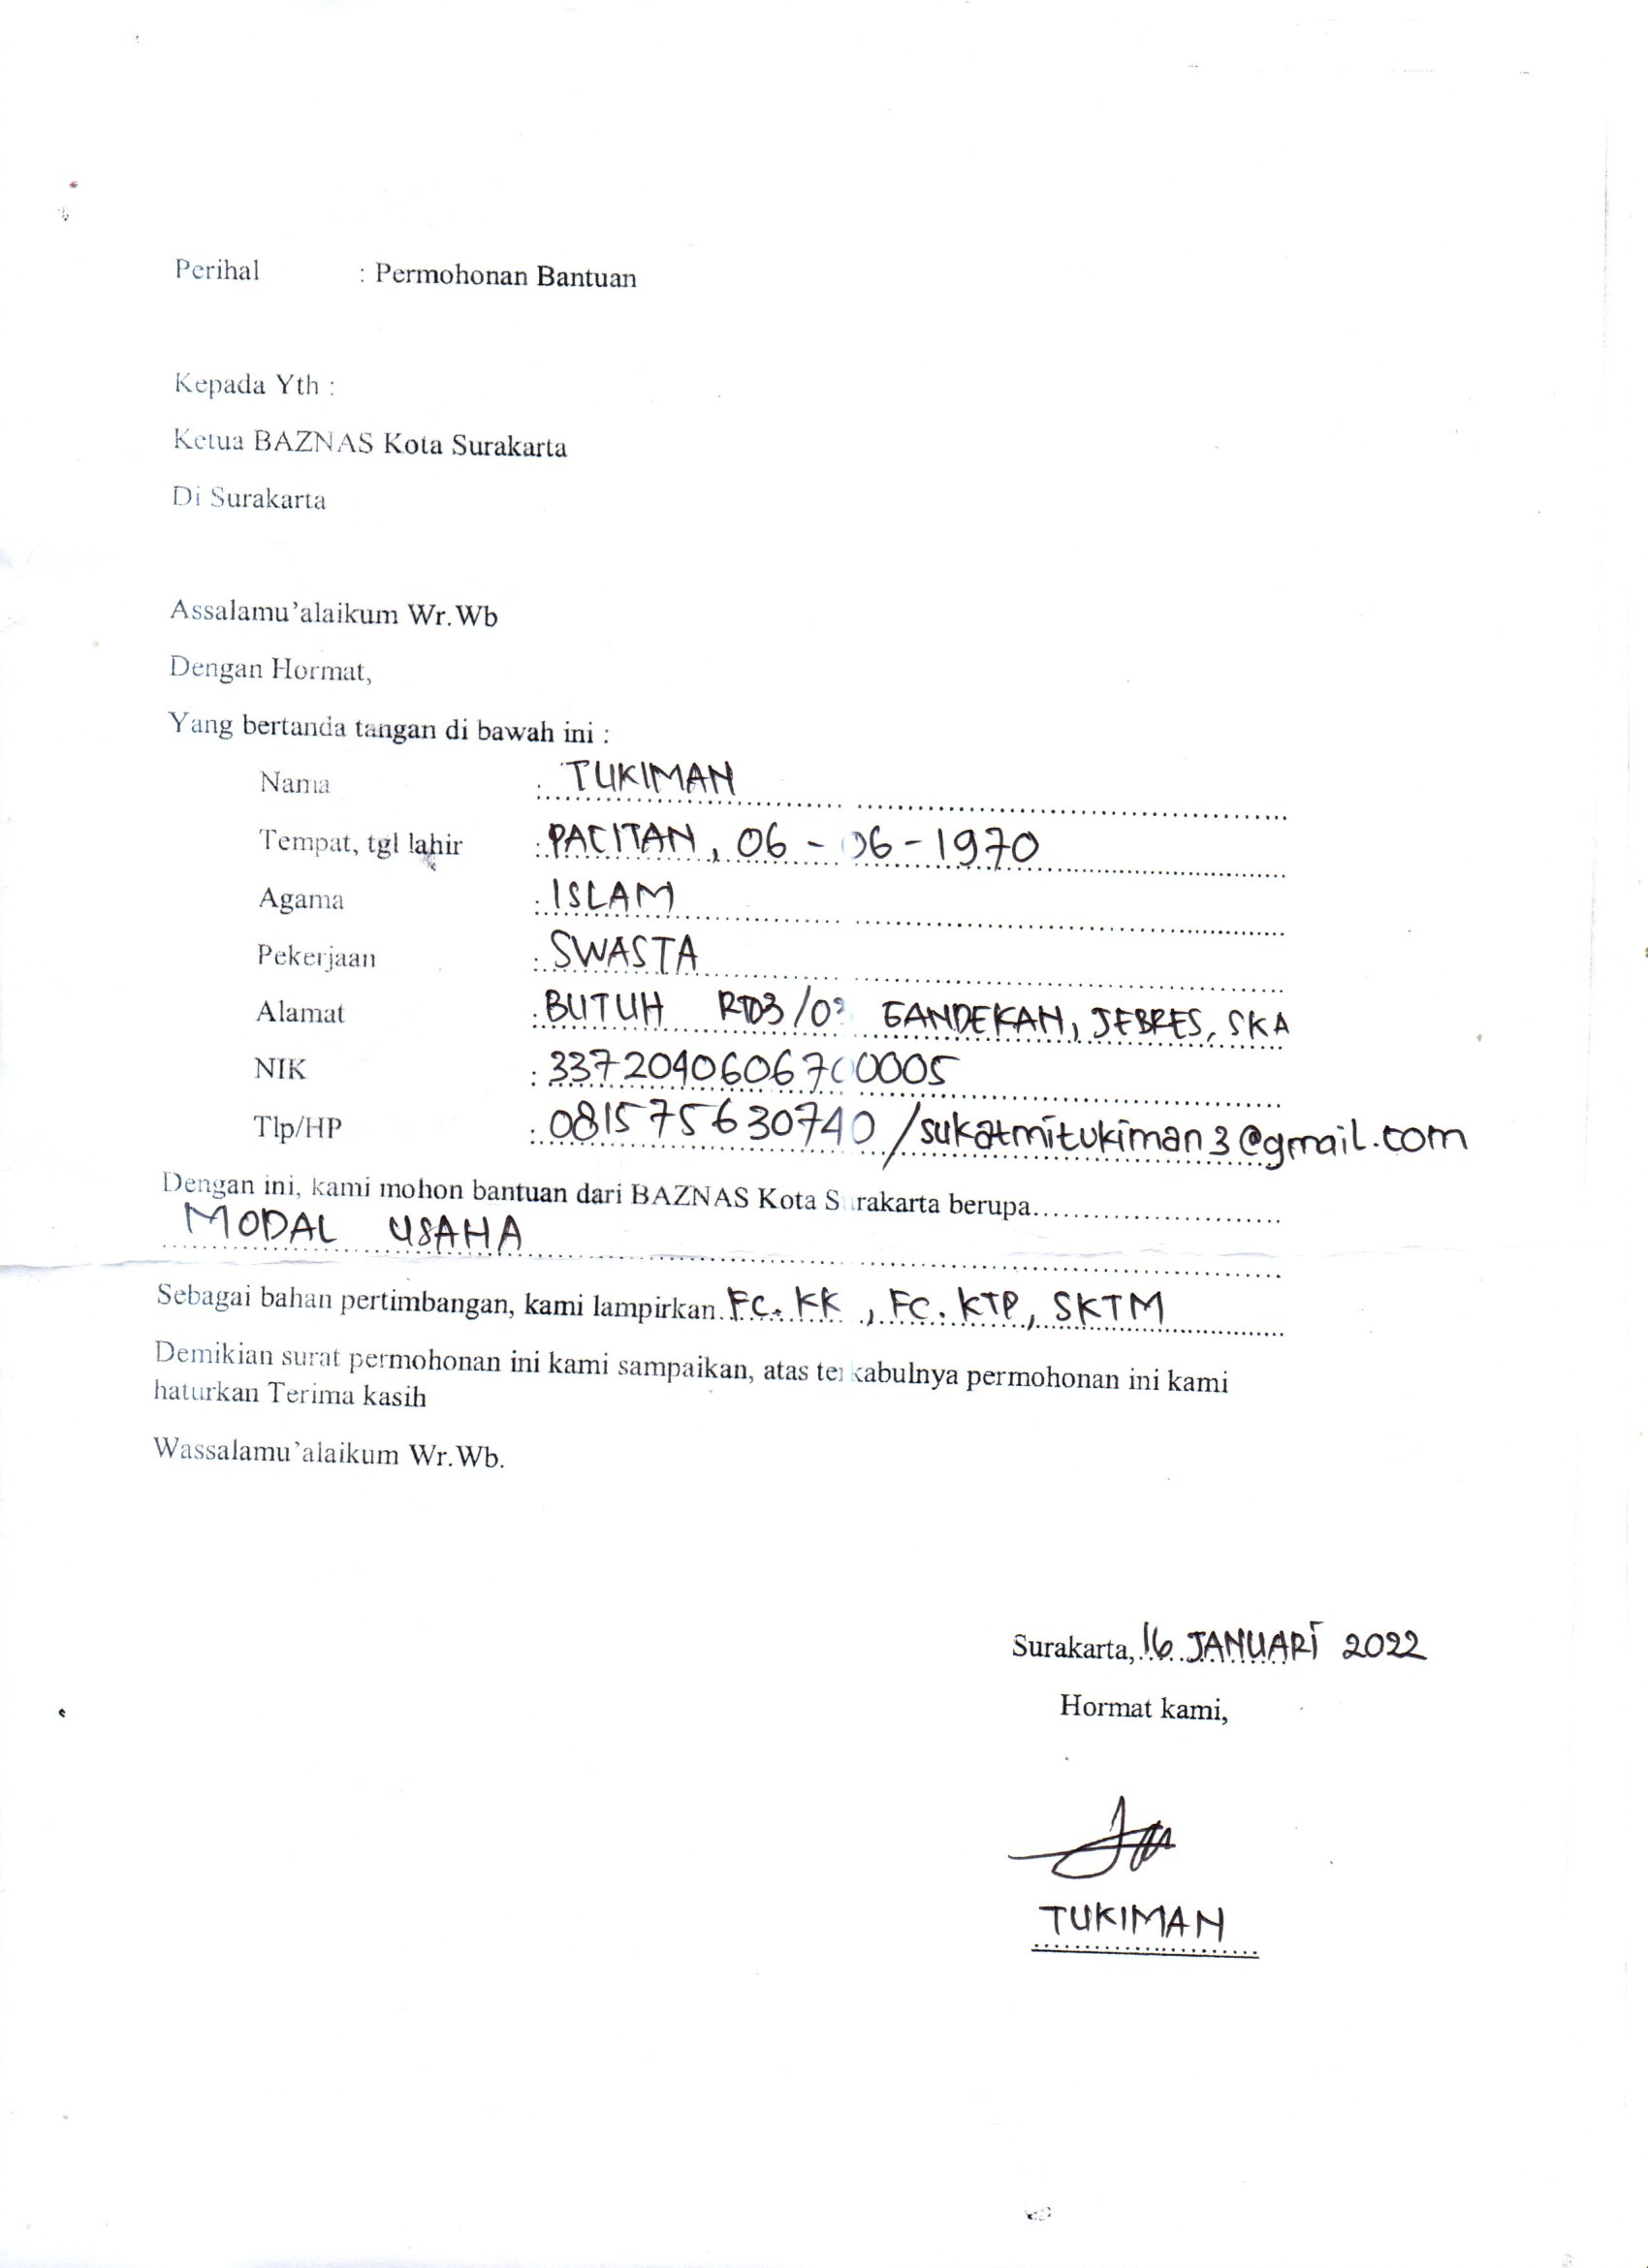 Perihal : Permohonan Bantuan
Kepada Yth :
Ketua BAZNAS Kota Surakarta
Di Surakarta
Assalamu'alaikum Wr.Wb
Dengan Hormat,
Yang bertanda tangan di bawah ini :
Nama : TUKIMAN
Tempat, tgl lahir : PACITAN, 06 - 06 - 1970
Agama : ISLAM
Pekerjaan : SWASTA
Alamat : BUTUH GANDEKAN, JEBRES, SKA
NIK : 3372040606700005
Tlp/HP : 081575630740 /sukatmitukiman3@gmail.com
Dengan ini, kami mohon bantuan dari BAZNAS Kota Surakarta berupa..............................
MODAL USAHA
Sebagai bahan pertimbangan, kami lampirkan FC. KK, FC. KTP, SKTM
Demikian surat permohonan ini kami sampaikan, atas terkabulnya permohonan ini kami
haturkan Terima kasih
Wassalamu'alaikum Wr.Wb.
Surakarta, 16 JANUARI 2022
Hormat kami,
TUKIMAN